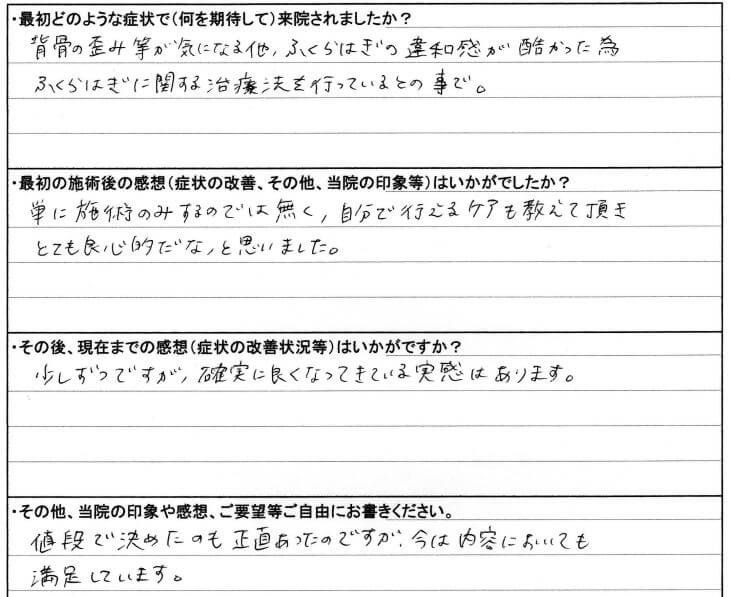 ・最初どのような症状で(何を期待して)来院されましたか?
背骨の歪み等が気になる他、ふくらはぎの違和感が酷かった為
ふくらはぎに関する治療法を行っているとの事で。
・最初の施術後の感想(症状の改善、その他、当院の印象等)はいかがでしたか?
単に施術のみするのでは無く、自分で行えるケアも教えて頂き
とても良心的だな、と思いました。
・その後、現在までの感想(症状の改善状況等)はいかがですか?
少しずつですが、確実に良くなってきている実感はあります。
・その他、当院の印象や感想、ご要望等ご自由にお書きください。
値段で決めたのも正直あったのですが、今は内容においても
満足しています。